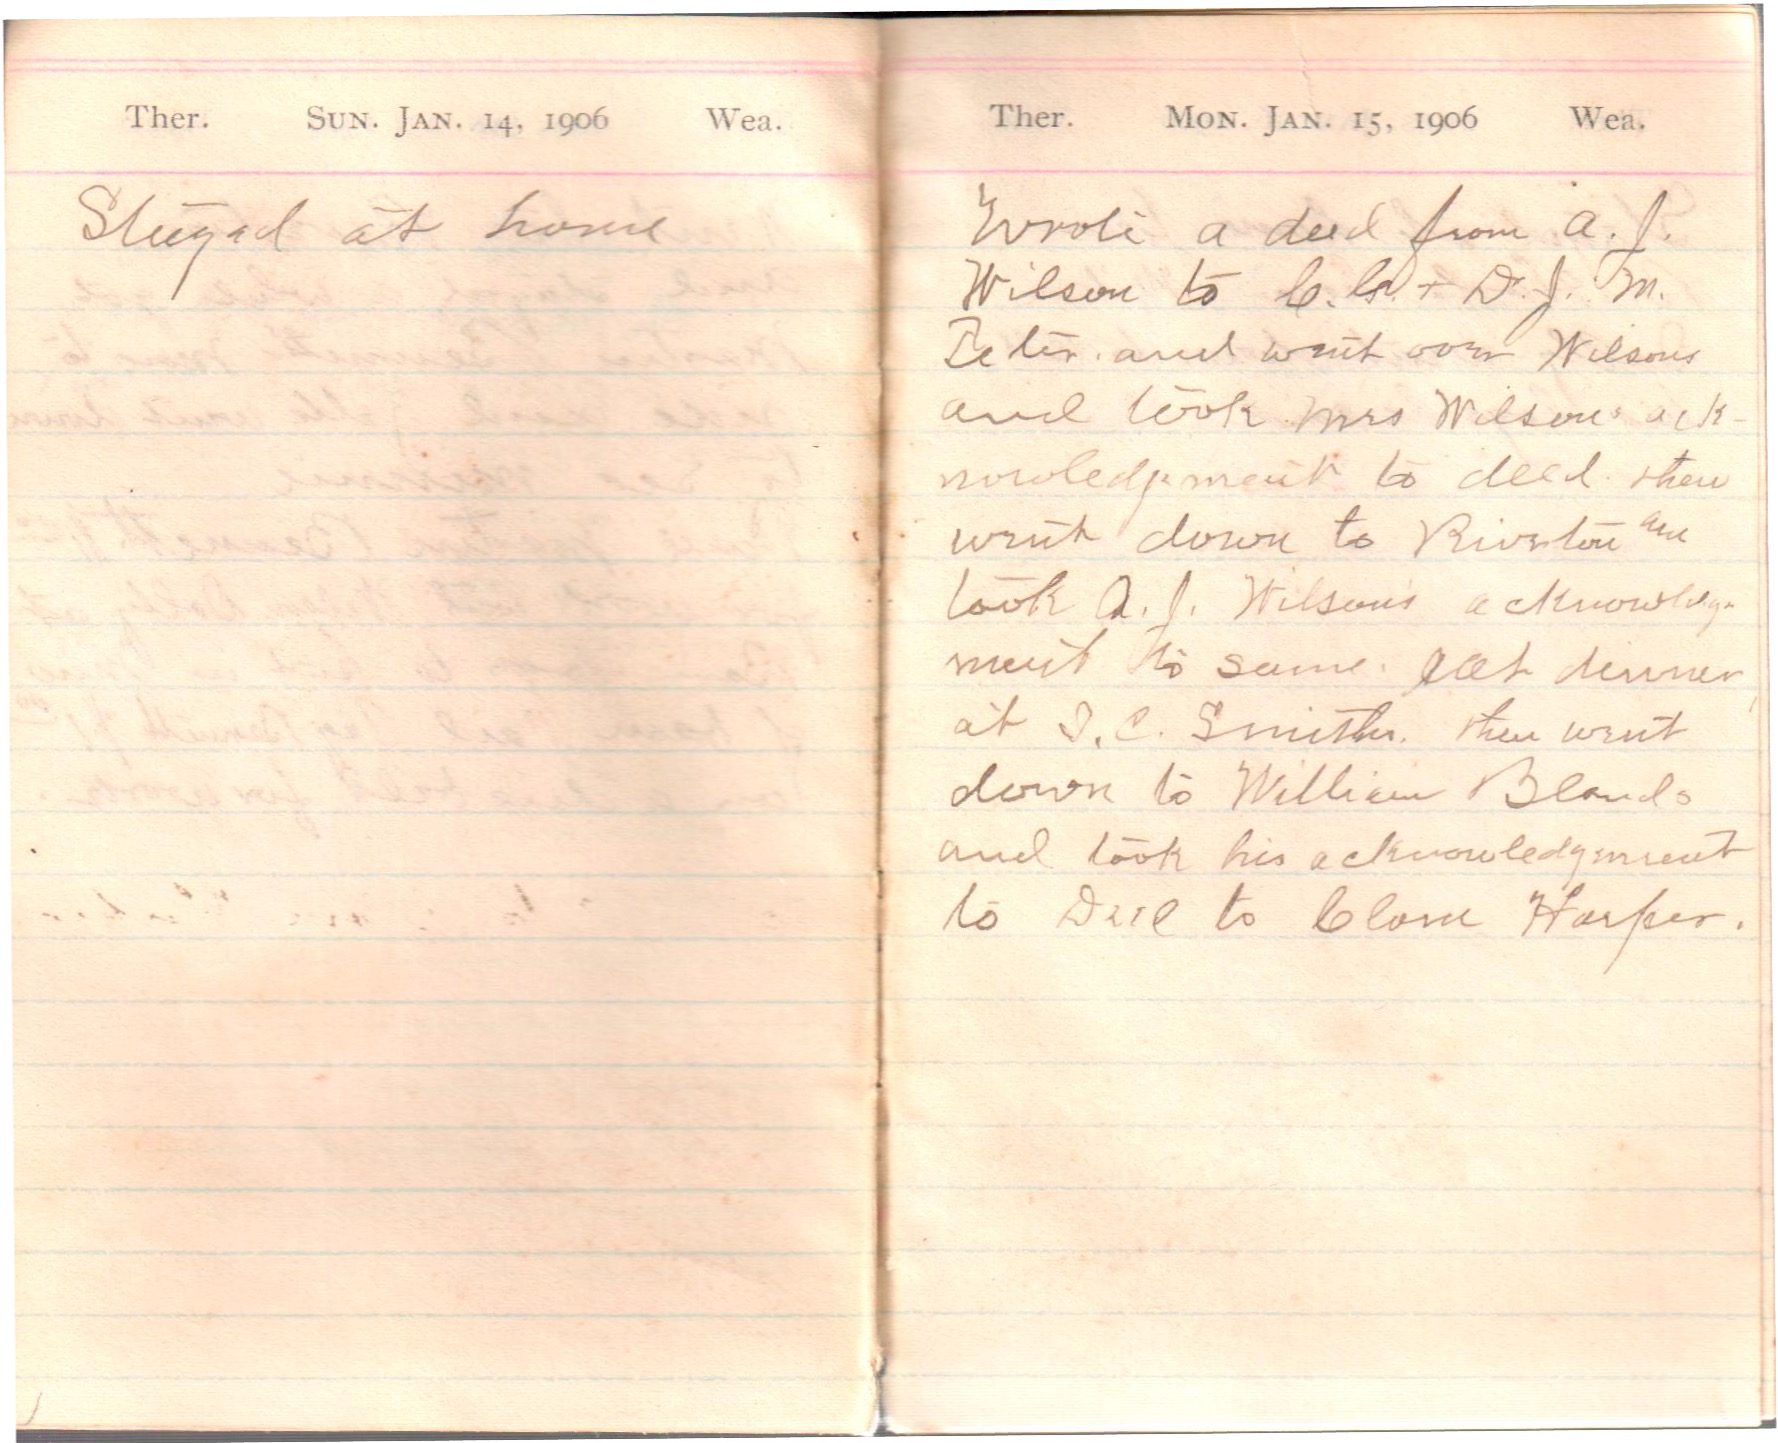 Ther. Sun. Jan. 14, 1906 Wea.
Stayed at home
Ther. Mon. Jan. 15, 1906 Wea.
Wrote a deed from A. J.
Wilson to C. G. + D. J. M.
Teter. and went over Wilsons
and took Mrs Wilsons ack-
nowledgement to deed. then
went down to Riverton and
took A. J. Wilson's acknowledg-
ment to same. eat dinner
at I. C. Smiths. then went
down to William Blands
and took his acknowledgement
to Deed to Harper.